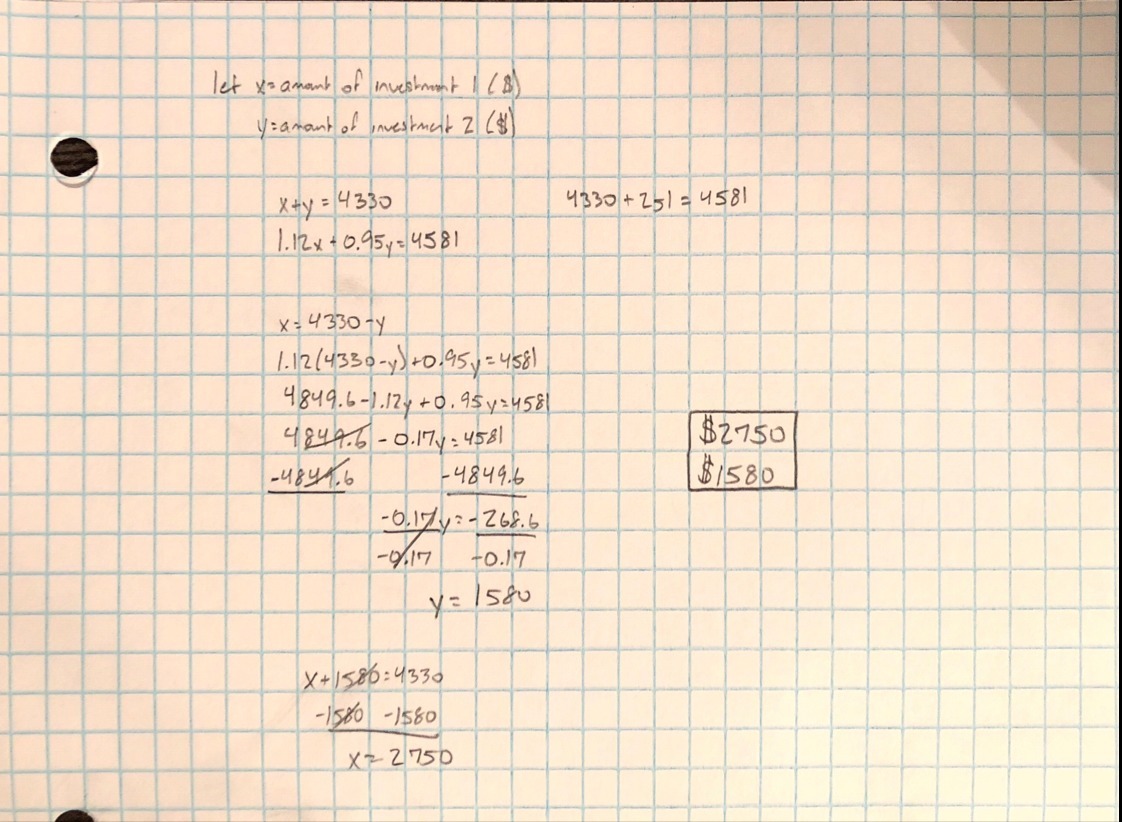 let x=amount of investment 1 ($)
y=amount of investment 2 ($)
x+y=4330
4330+251=4581
1.12x+0.95y=4581
x=4330-y
1.12(4330-y)+0.95y=4581
4849.6-1.12y+0.95y=4581
4849.6-0.17y=4581
-4849.6 -4849.6
-0.17y=-268.6
-0.17 -0.17
y=1580
$2750
$1580
x+1580=4330
-1580 -1580
x=2750